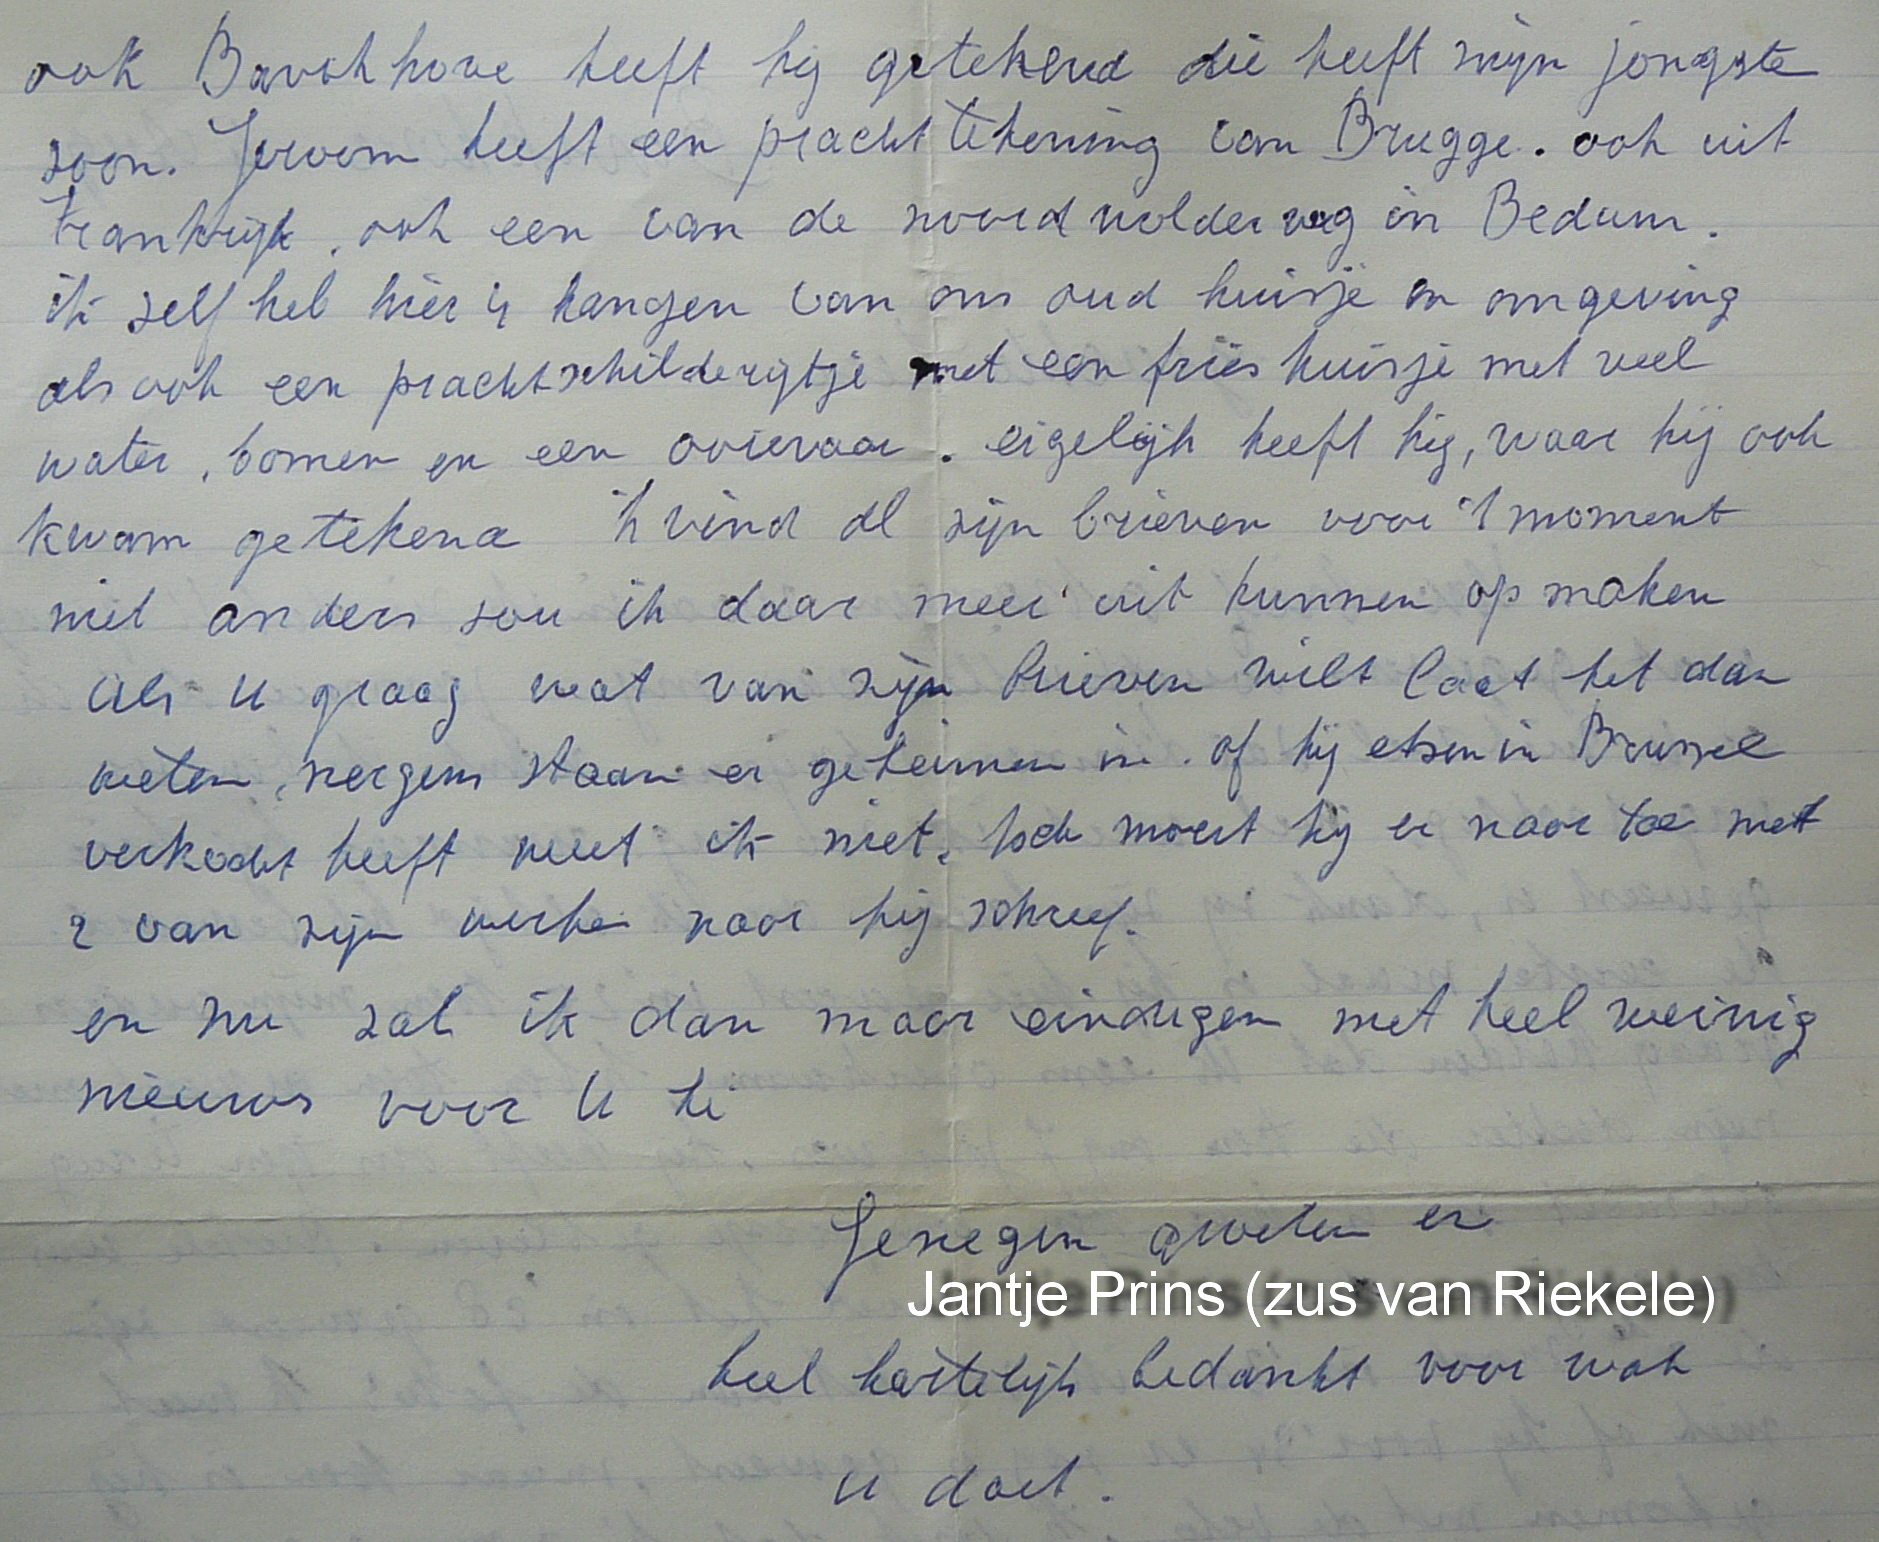 ook Bavokhove heeft hij getekend die heeft mijn jongste
zoon. Jeroom heeft een pracht tekening van Brugge. ook uit
Frankrijk, ook een van de noord wolderweg in Bedum.
ik zelf heb hier 4 hangen van ons oud huisje en omgeving
als ook een prachtschilderijtje met een fries huisje met veel
water, bomen en een ooievaar. eigelijk heeft hij, waar hij ook
kwam getekend ik vind al zijn brieven voor 't moment
niet anders zou ik daar meer uit kunnen op maken
als u graag wat van zijn brieven wilt laat het dan
weten, nergens staan er geheimen in. of hij etsen in Brussel
verkocht heeft weet ik niet, toch moest hij er naar toe met
2 van zijn werken naar hij schreef.
en nu zal ik dan maar eindigen met heel weinig
nieuws voor U
Genegen groeten er
Jantje Prins (zus van Riekele)
heel hartelijk bedankt voor wat
u doet.